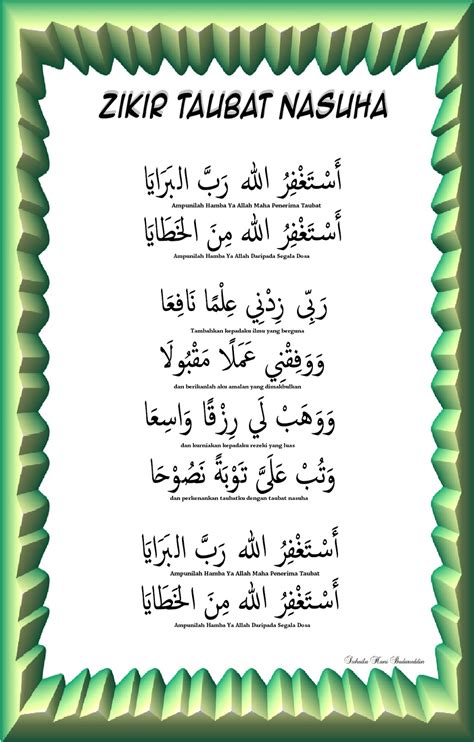 ZIKIR TAUBAT NASUHA
أَسْتَغْفِرُ الله رَبَّ البَرَايَا
Ampunilah Hamba Ya Allah Maha Penerima Taubat
أَسْتَغْفِرُ الله مِنَ الخَطَايَا
Ampunilah Hamba Ya Allah Daripada Segala Dosa
رَبِّى زِدْنِي عِلْمًا نَافِعَا
Tambahkan kepadaku ilmu yang berguna
وَوَفِقْنِي عَمَلًا مَقْبُولَا
dan berikanlah aku amalan yang dimakbulkan
وَوَهَبْ لِي رِزْقًا وَاسِعَا
dan kurniakan kepadaku rezeki yang luas
وَتُبْ عَلَىَّ تَوْبَةً نَصُوْحَا
dan perkenankan taubatku dengan taubat nasuha
أَسْتَغْفِرُ الله رَبَّ البَرَايَا
Ampunilah Hamba Ya Allah Maha Penerima Taubat
أَسْتَغْفِرُ الله مِنَ الخَطَايَا
Ampunilah Hamba Ya Allah Daripada Segala Dosa